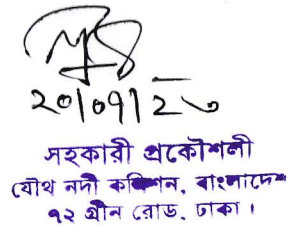 ২০|০৭|২৩
সহকারী প্রকৌশলী
যৌথ নদী কমিশন, বাংলাদেশ
৭২ গ্রীন রোড, ঢাকা।